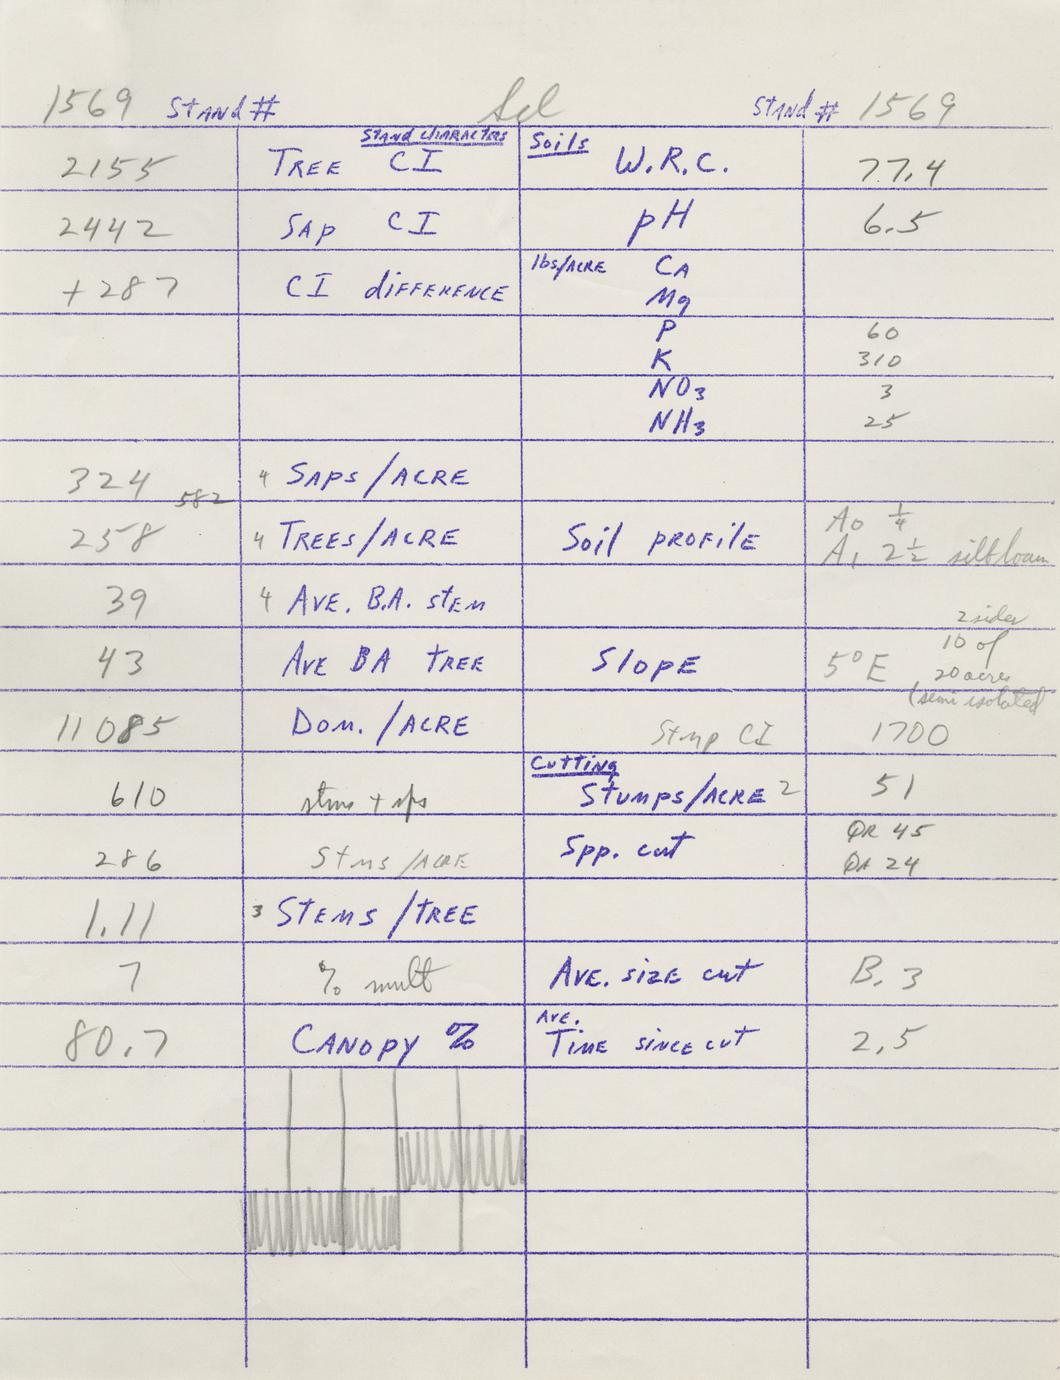 1569 Stand # Sel Stand # 1569
Stand Characters Soils
2155 Tree CI W.R.C. 77.4
2442 Sap CI pH 6.5
+287 CI difference lbs/Acre Ca
Mg
P 60
K 310
NO3 3
NH3 25
324 4 Saps/Acre
582
258 4 Trees/Acre Soil profile A0 1/4
A1 2 1/2 silt loam
39 4 Ave. B.A. stem
43 Ave BA tree Slope 5° E 2 sides
10 of
20 acres
(semi isolated
11085 Dom./Acre Stmp CI 1700
Cutting
610 stms + sps Stumps/Acre 2 51
286 Stms/Acre Spp. cut QR 45
QA 24
1.11 3 Stems/tree
7 % mult Ave. size cut B. 3
80.7 Canopy % Ave.
Time since cut 2.5